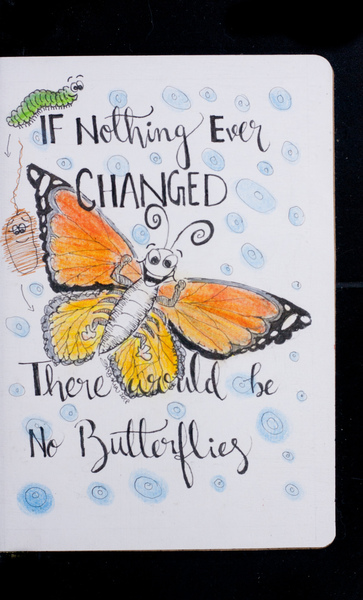 IF Nothing Ever
CHANGED
There would be
No Butterflies